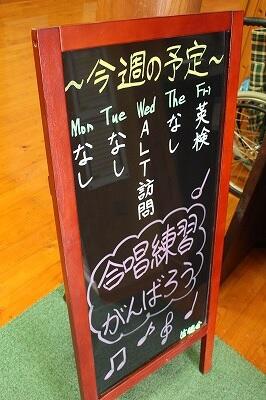 ～今週の予定～
Mon なし
Tue なし
Wed ALT訪問
The なし
Fri 英検
合唱練習
がんばろう